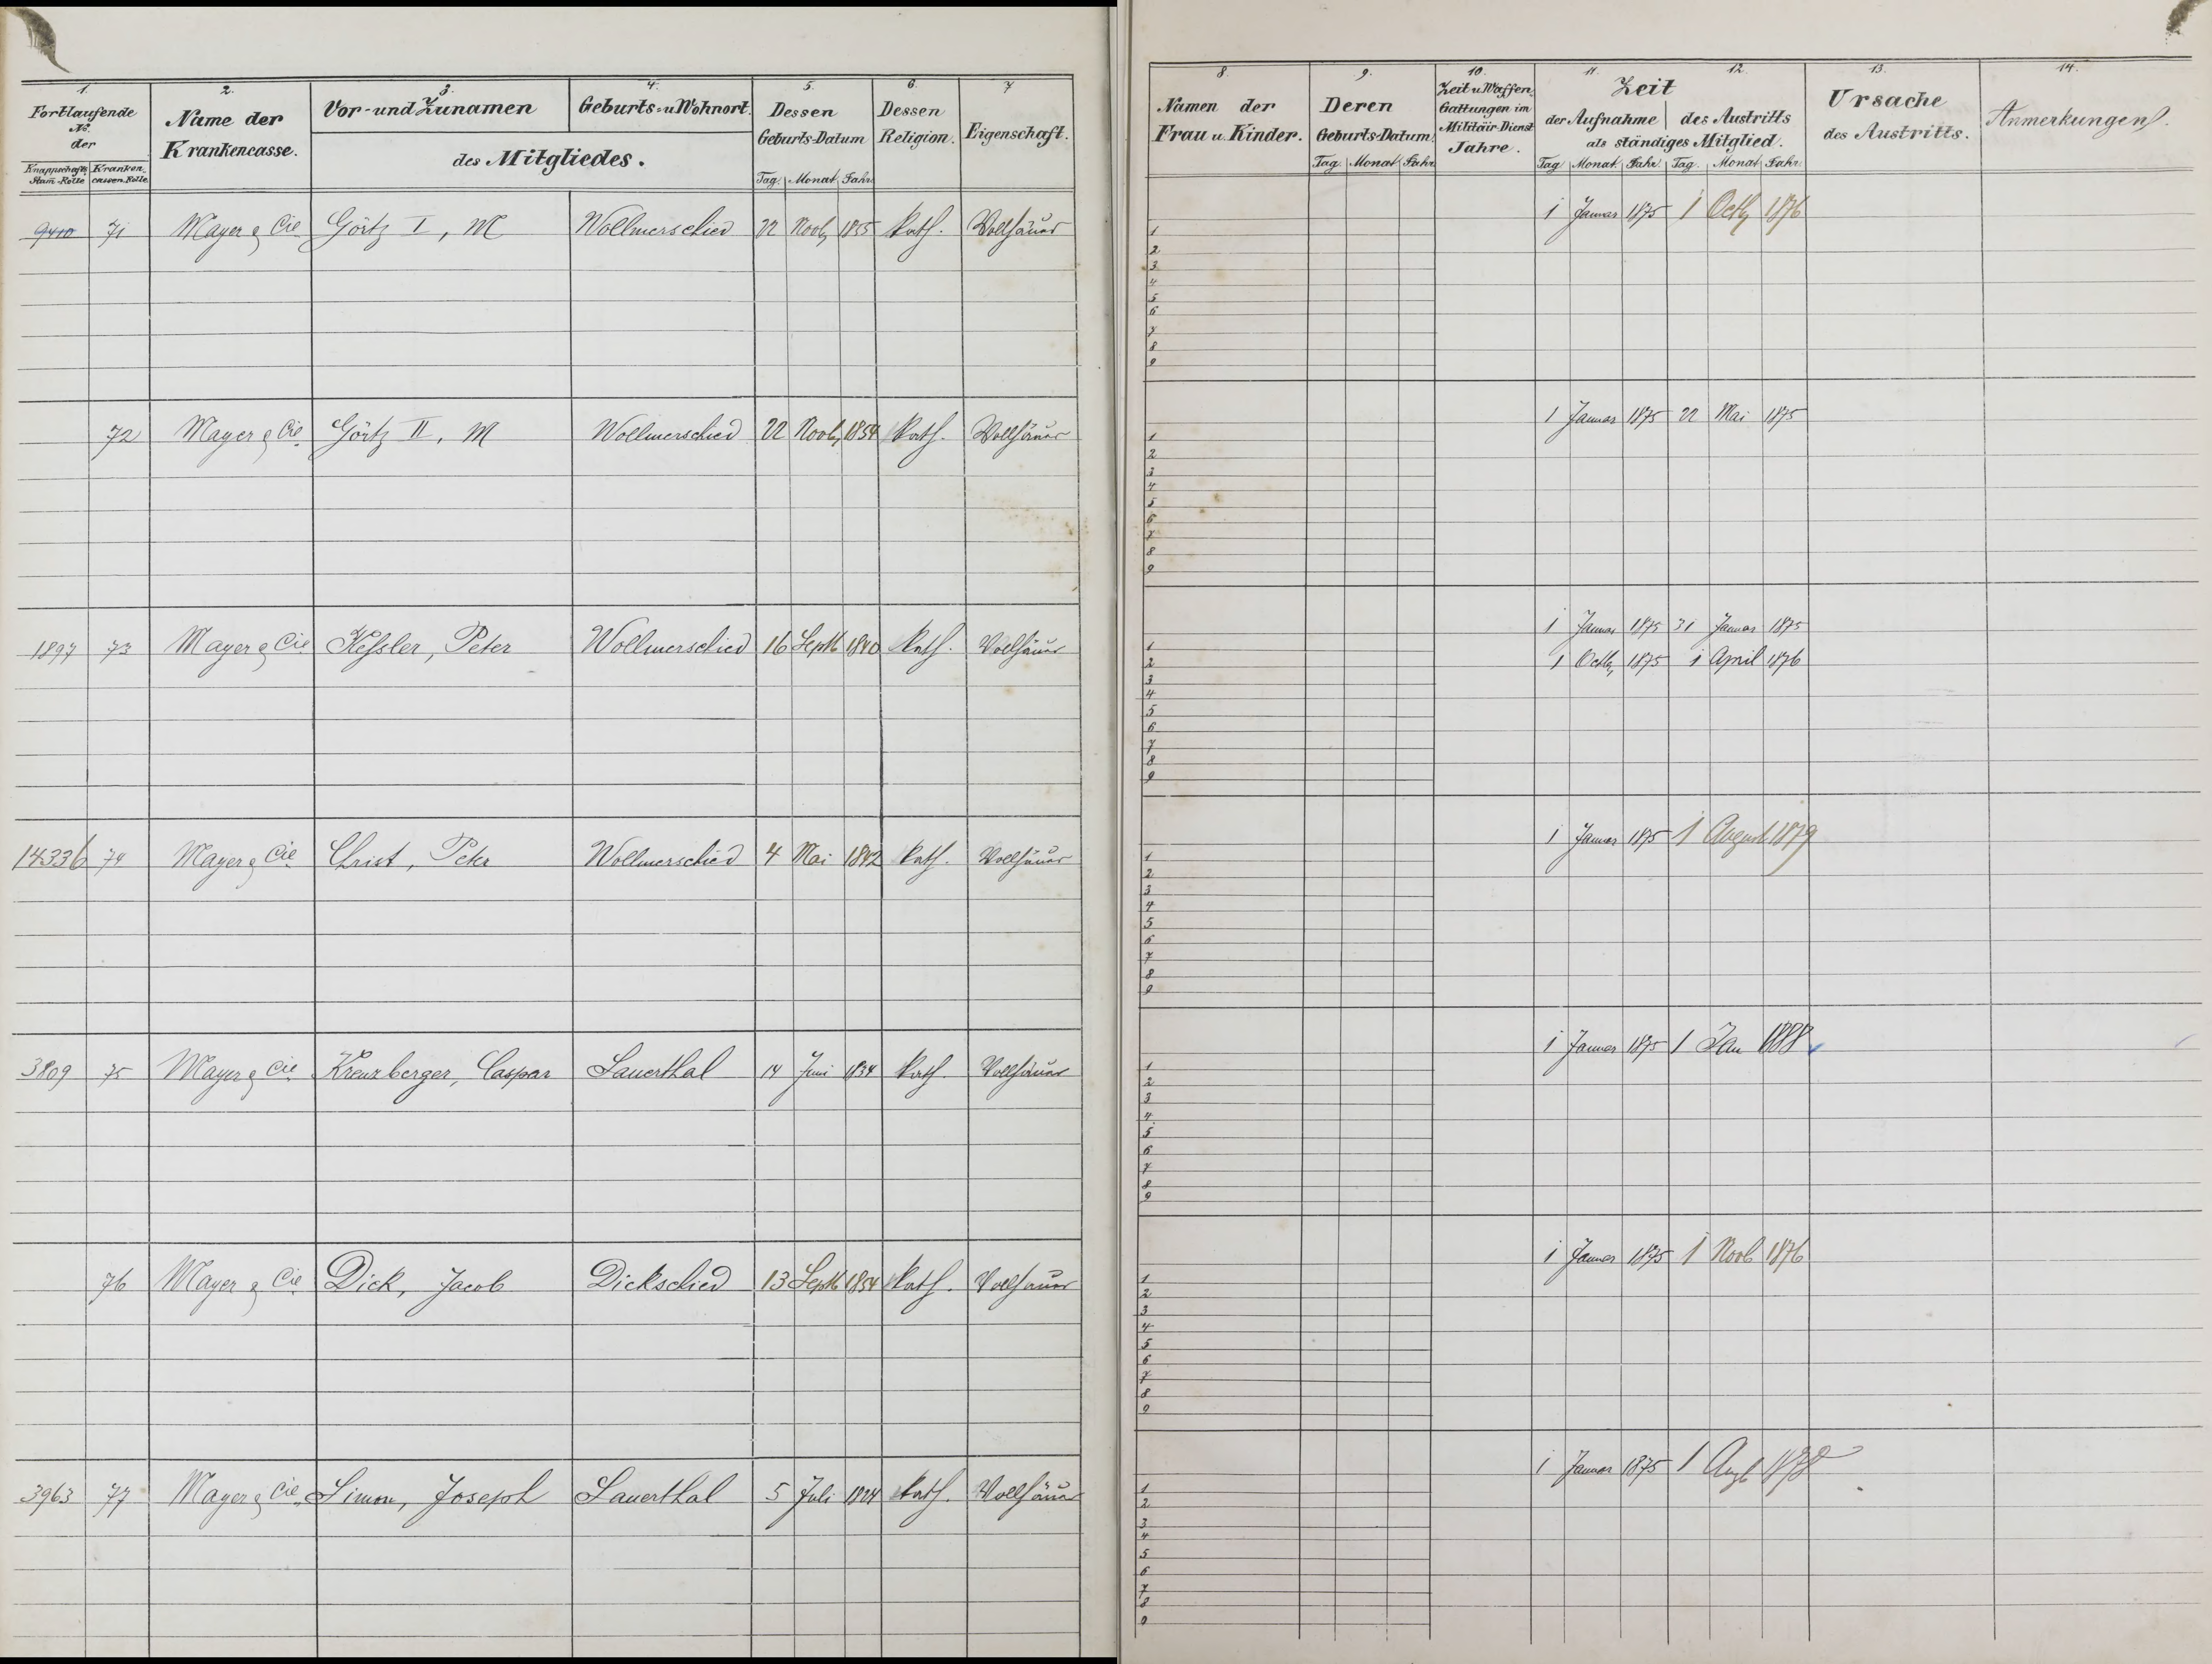 1. 2. 3. 4. 5. 6. 7
Fortlaufende No. der
Knappschafts Stam-Rolle Krankencassen-Rolle
Name der Krankencasse.
Vor- und Zunamen
Geburts- u Wohnort.
des Mitgliedes.
Dessen Geburts-Datum
Tag. Monat. Jahr
Dessen Religion.
Eigenschaft.
9410 71 Mayer & Cie Görtz I, M Wollmerschied 22 Novb, 1855 kath. Vollhäuer
72 Mayer & Cie Görtz II, M Wollmerschied 22 Novb, 1854 kath. Vollhäuer
1897 73 Mayer & Cie Keßler, Peter Wollmerschied 16 Septb 1840 kath. Vollhäuer
14336 74 Mayer & Cie Christ, Peter Wollmerschied 4 Mai 1842 kath. Vollhäuer
3809 75 Mayer & Cie Kreuzberger, Caspar Sauerthal 14 Juni 1834 kath. Vollhäuer
76 Mayer & Cie Dick, Jacob Dickschied 13 Septb 1854 kath. Vollhäuer
3963 77 Mayer & Cie Simon, Joseph Sauerthal 5 Juli 1824 kath. Vollhäuer
8. 9. 10. 11. 12. 13. 14.
Namen der Frau u. Kinder.
Deren Geburts-Datum.
Tag. Monat Jahr.
Zeit u Waffen-Gattungen im Militär-Dienst Jahre.
Zeit
der Aufnahme des Austritts
als ständiges Mitglied.
Tag Monat. Jahr. Tag. Monat. Jahr.
Ursache des Austritts.
Anmerkungen.
1 Januar 1875 1 Octb, 1876
1
2
3
4
5
6
7
8
9
1 Januar 1875 22 Mai 1875
1
2
3
4
5
6
7
8
9
1 Januar 1875 31 Januar 1875
1
1 Octb, 1875 1 April 1876
2
3
4
5
6
7
8
9
1 Januar 1875 1 August 1879
1
2
3
4
5
6
7
8
9
1 Januar 1875 1 Jan 1888
1
2
3
4
5
6
7
8
9
1 Januar 1875 1 Novb 1876
1
2
3
4
5
6
7
8
9
1 Januar 1875 1 Augb
1
2
3
4
5
6
7
8
9